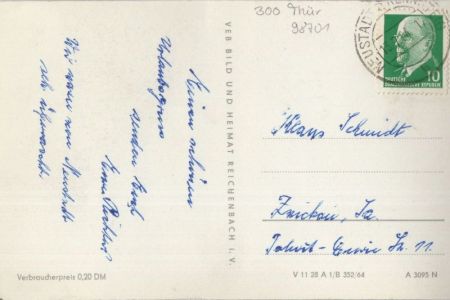 300 Thür
98701
NEUSTADT
DEUTSCHE
DEMOKRATISCHE REPUBLIK
10
Einen schönen
Urlaubsgruß
senden Euch
Wir waren von Neustadt
sehr
VEB BILD UND HEIMAT REICHENBACH I. V.
Klaus Schmidt
Zwickau, Sa.
Str. 11
Verbraucherpreis 0,20 DM
V 11 28 A 1/B 352/64
A 3095 N